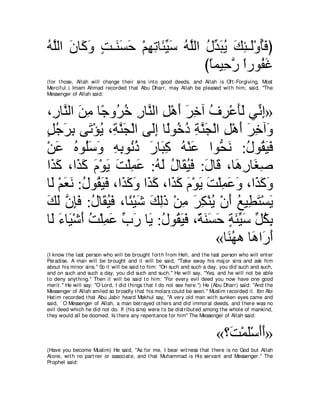 فَأُوْلَـئِكَ يُبَدِّلُ اللَّهُ سَيِّئَاتِهِمْ حَسَنَـتٍ وَكَانَ اللَّهُ
غَفُوراً رَّحِيماً)
(for those, Allah will change their sins into good deeds, and Allah is Oft-Forgiving, Most
Merciful.) Imam Ahmad recorded that Abu Dharr, may Allah be pleased with him, said, "The
Messenger of Allah said:
«إِنِّي لَأَعْرِفُ آخِرَ أَهْلِ النَّارِ خُرُوجًا مِنَ النَّارِ،
وَآخِرَ أَهْلِ الْجَنَّةِ دُخُولًا إِلَى الْجَنَّةِ، يُؤْتَى بِرَجُلٍ
فَيَقُولُ: نَحُّوا عَنْهُ كِبَارَ ذُنُوبِهِ وَسَلُوهُ عَنْ
صِغَارِهَا، قَالَ: فَيُقَالُ لَهُ: عَمِلْتَ يَوْمَ كَذَا، كَذَا
وَكَذَا، وَعَمِلْتَ يَوْمَ كَذَا، كَذَا وَكَذَا، فَيَقُولُ: نَعَمْ لَا
يَسْتَطِيعُ أَنْ يُنْكِرَ مِنْ ذلِكَ شَيْئًا، فَيُقَالُ: فَإِنَّ لَكَ
بِكُلِّ سَيِّئَةٍ حَسَنَةً، فَيَقُولُ: يَا رَبِّ عَمِلْتُ أَشْيَاءَ لَا
أَرَاهَا ههُنَا»
(I know the last person who will be brought forth from Hell, and the last person who will enter
Paradise. A man will be brought and it will be said, "Take away his major sins and ask him
about his minor sins." So it will be said to him: "On such and such a day, you did such and such,
and on such and such a day, you did such and such." He will say, "Yes, and he will not be able
to deny anything." Then it will be said to him: "For every evil deed you now have one good
merit." He will say: "O Lord, I did things that I do not see here.") He (Abu Dharr) said: "And the
Messenger of Allah smiled so broadly that his molars could be seen." Muslim recorded it. Ibn Abi
Hatim recorded that Abu Jabir heard Makhul say, "A very old man with sunken eyes came and
said, `O Messenger of Allah, a man betrayed others and did immoral deeds, and there was no
evil deed which he did not do. If (his sins) were to be distributed among the whole of mankind,
they would all be doomed. Is there any repentance for him" The Messenger of Allah said:
«أَأَسْلَمْتَ؟»
(Have you become Muslim) He said, "As for me, I bear witness that there is no God but Allah
Alone, with no partner or associate, and that Muhammad is His servant and Messenger." The
Prophet said: